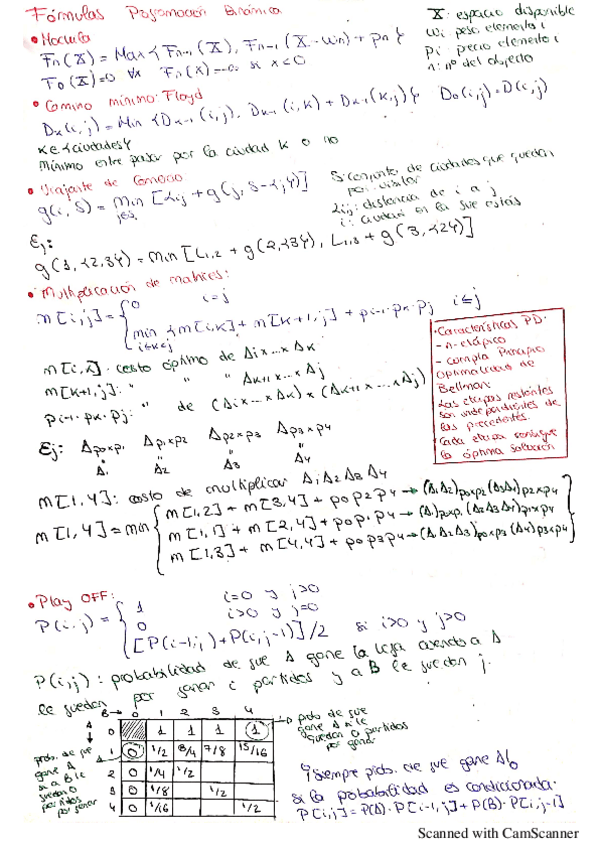 Fórmulas Programación Dinámica
• Mochila
Fn(X) = Max { Fn-1(X), Fn-1(X-wn) + pn }
F0(X)=0 ∀x Fn(X)=-∞ si x<0
X: espacio disponible
wi: peso elemento i
pi: precio elemento i
n: nº del objeto
• Camino mínimo: Floyd
Dk(i,j) = Min { Dk-1(i,j), Dk-1(i,k) + Dk-1(k,j) } D0(i,j)=D(i,j)
k ∈ {ciudades}
Mínimo entre pasar por la ciudad k o no
• Viajante de Comercio:
g(i,S) = min [Lij + g(j, S-{j})]
j∈S
S: conjunto de ciudades que quedan
por visitar
Lij: distancia de i a j
i: ciudad en la que estás
Ej:
g(1,{2,3}) = min [L1,2 + g(2,{3}), L1,3 + g(3,{2})]
• Multiplicación de matrices:
m[i,j] = { 0 i=j
min {m[i,k] + m[k+1,j] + pi-1·pk·pj i≤j
i≤k<j
m[i,k]: costo óptimo de Ai x ... x Ak
m[k+1,j]: " " " Ak+1 x ... x Aj
pi-1·pk·pj: " de (Ai x ... x Ak) x (Ak+1 x ... x Aj)
• Características PD:
- n-etápico
- cumpla Principio
Optimalidad de
Bellman:
Las etapas restantes
son independientes de
las precedentes.
Cada etapa consigue
la óptima solución
Ej: Ap0xp1 Ap1xp2 Ap2xp3 Ap3xp4
A1 A2 A3 A4
m[1,4]: costo de multiplicar A1A2A3A4
m[1,4] = min { m[1,2] + m[3,4] + p0p2p4 → (A1A2)p0xp2 (A3A4)p2xp4
m[1,1] + m[2,4] + p0p1p4 → (A1)p0xp1 (A2A3A4)p1xp4
m[1,3] + m[4,4] + p0p3p4 → (A1A2A3)p0xp3 (A4)p3xp4
• Play OFF:
P(i,j) = { 1 i=0 y j>0
0 i>0 y j=0
[P(i-1,j) + P(i,j-1)]/2 si i>0 y j>0
P(i,j): probabilidad de que A gane la liga cuando a A
le quedan por ganar i partidos y a B le quedan j.
B→ 0 1 2 3 4
A
0 1 1 1 1
1 0 1/2 3/4 7/8 15/16
2 0 1/4 1/2
3 0 1/8 1/2
4 0 1/16 1/2
prob de que
gane A si A le
quedan 0 partidos
por ganar
prob. de que
gane A
si a B le
quedan 0
partidos
por ganar
Siempre prob. de que gane A
si la probabilidad es condicionada:
P[i,j] = P(A)·P[i-1,j] + P(B)·P[i,j-1]
Scanned with CamScanner